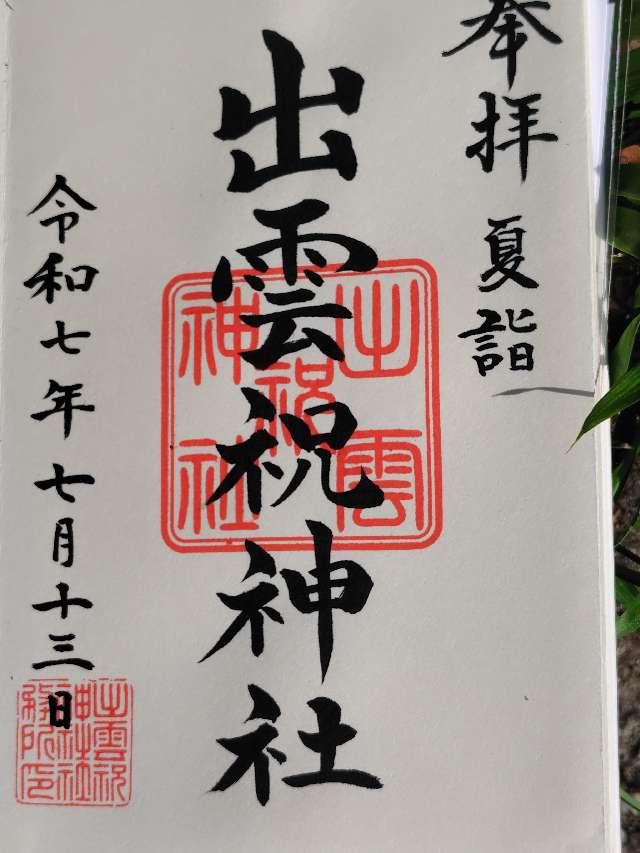 奉拝 夏詣
出雲祝神社
出雲
祝
神社
令和七年七月十三日
出雲祝
神社社
務所印